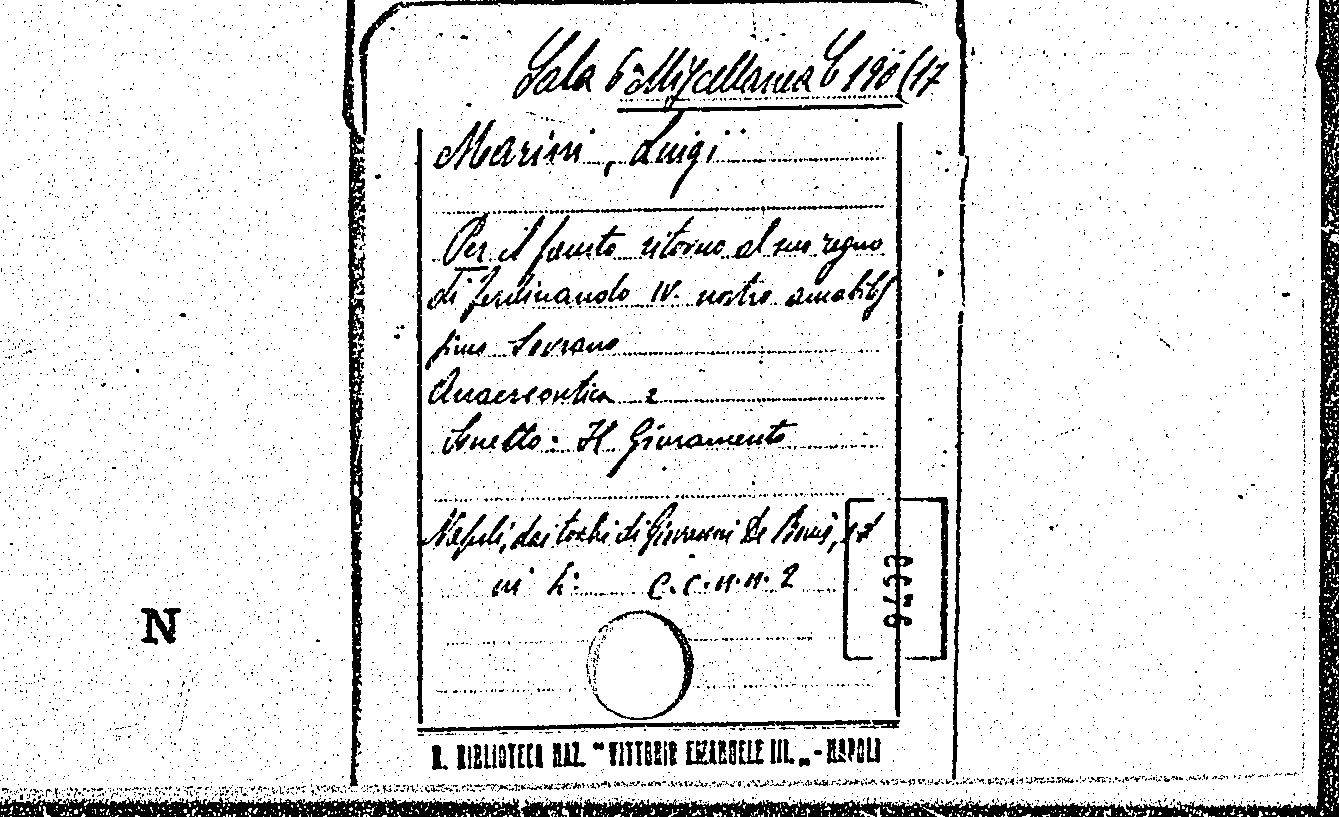 Sala 6ª Miscellanea C 190(17
Marini, Luigi
Per il fausto ritorno al suo regno
di Ferdinando IV. nostro amabilis
simo Sovrano
Anacreontica e
Sonetto: Il Giuramento
Napoli, dai torchi di Giovanni De Bonis, s.d
in 4: C.c.n.n. 2
N
R. BIBLIOTECA NAZ. "VITTORIO EMANUELE III." - NAPOLI